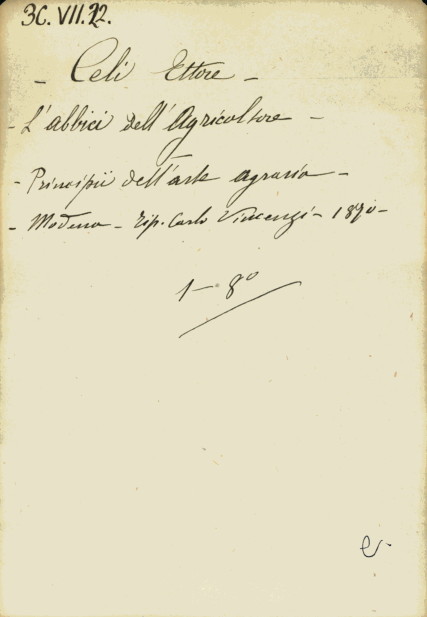 3C. VII. 22.
- Celi Ettore -
- L'abbici dell'Agricoltore -
- Principii dell'arte agraria -
- Modena - Tip. Carlo Vincenzi - 1870 -
1 - 8°